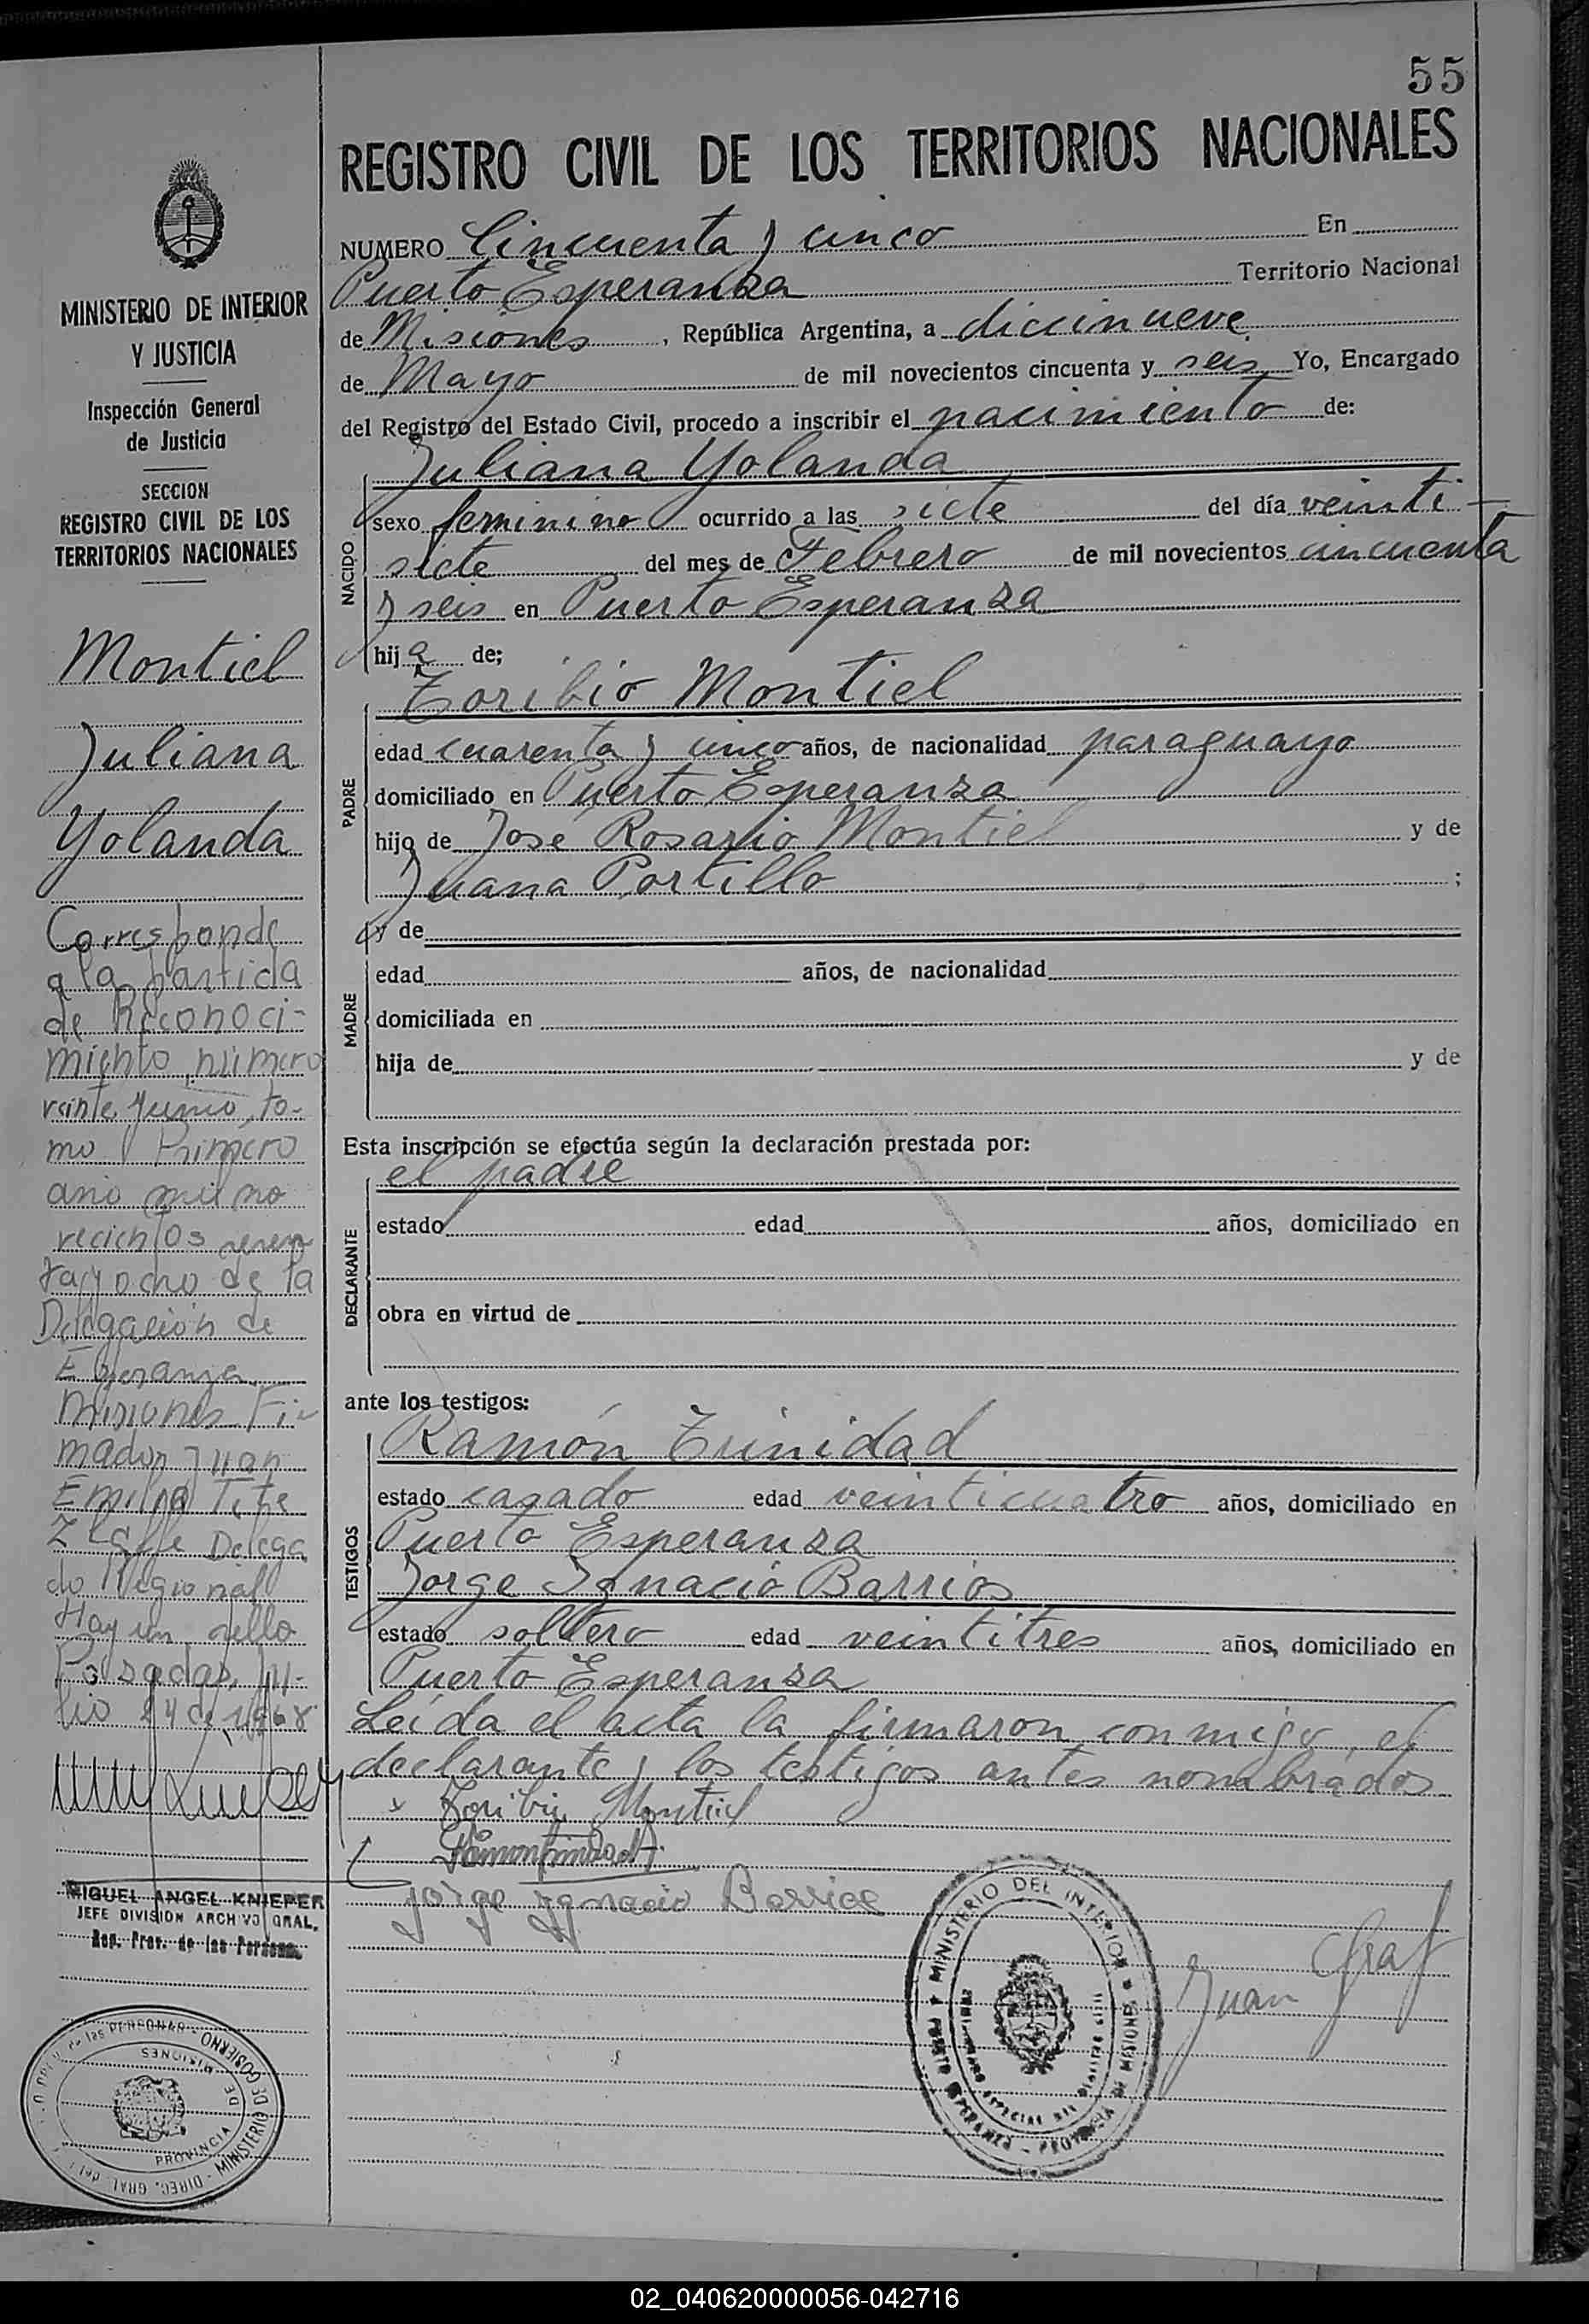 55
REGISTRO CIVIL DE LOS TERRITORIOS NACIONALES
NUMERO Cincuenta y cinco En
Puerto Esperanza Territorio Nacional
de Misiones, República Argentina, a diecinueve
de Mayo de mil novecientos cincuenta y seis Yo, Encargado
del Registro del Estado Civil, procedo a inscribir el nacimiento de:
NACIDO
Juliana Yolanda
sexo feminino ocurrido a las siete del día veinti-
siete del mes de Febrero de mil novecientos cincuenta
y seis en Puerto Esperanza
hija de;
PADRE
Toribio Montiel
edad cuarenta y cinco años, de nacionalidad paraguayo
domiciliado en Puerto Esperanza
hijo de José Rosario Montiel y de
Juana Portillo ;
y de
MADRE
edad años, de nacionalidad
domiciliada en
hija de y de
Esta inscripción se efectúa según la declaración prestada por:
DECLARANTE
el padre
estado edad años, domiciliado en
obra en virtud de
ante los testigos:
TESTIGOS
Ramón Trinidad
estado casado edad veinticuatro años, domiciliado en
Puerto Esperanza
Jorge Ignacio Barrios
estado soltero edad veintitres años, domiciliado en
Puerto Esperanza
Leída el acta la firmaron conmigo, el
declarante y los testigos antes nombrados
x Toribio Montiel
Ramon Trinidad
Jorge Ygnacio Barrios
Juan Graf
MINISTERIO DEL INTERIOR
PUERTO ESPERANZA - PROVINCIA DE MISIONES
MINISTERIO DE INTERIOR
Y JUSTICIA
Inspección General
de Justicia
SECCION
REGISTRO CIVIL DE LOS
TERRITORIOS NACIONALES
Montiel
Juliana
Yolanda
Corresponde
a la partida
de Reconoci-
miento número
veinte y uno, to-
mo Primero
año mil no
vecientos sesen
ta y ocho de la
Delegación de
Esperanza
Misiones Fir
mador Juan
Emilio
Delega
do Regional
Hay un sello
Posadas, Ju-
lio 24 de 1968
MIGUEL ANGEL KNIEPER
JEFE DIVISION ARCHIVO GRAL.
Reg. Prov. de las Personas
las PERSONAS - MINISTERIO DE GOBIERNO - DIREC. GRAL. del
PROVINCIA DE MISIONES
02_040620000056-042716